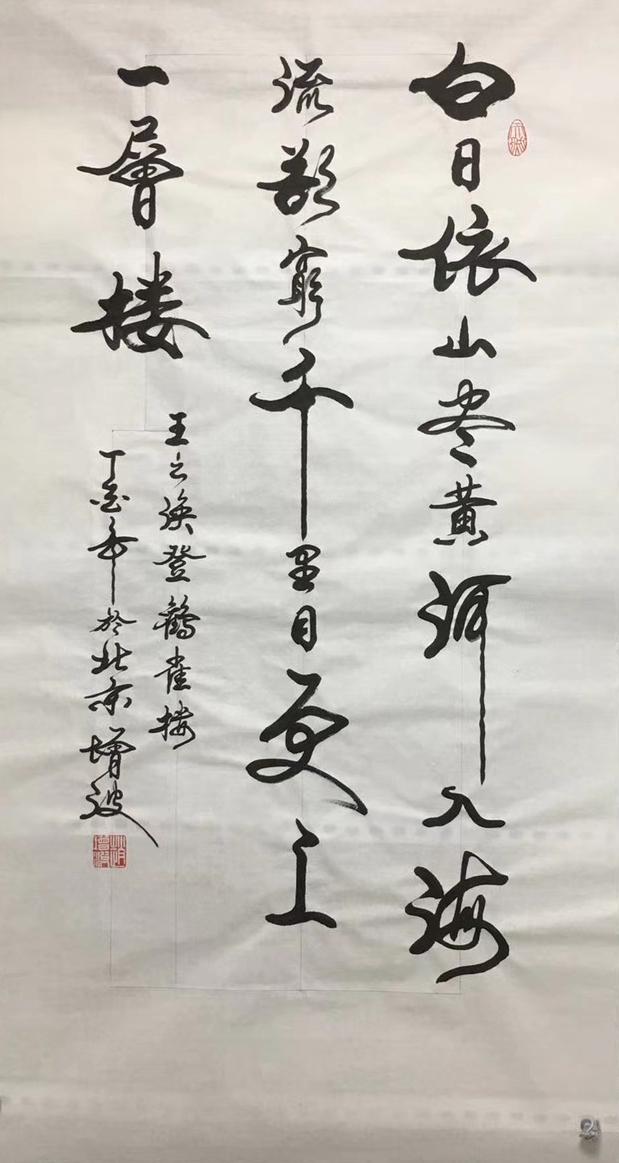 白日依山尽黄河入海
流欲窮千里目更上
一層楼
王之涣登鹳雀楼
丁酉年於北京增波